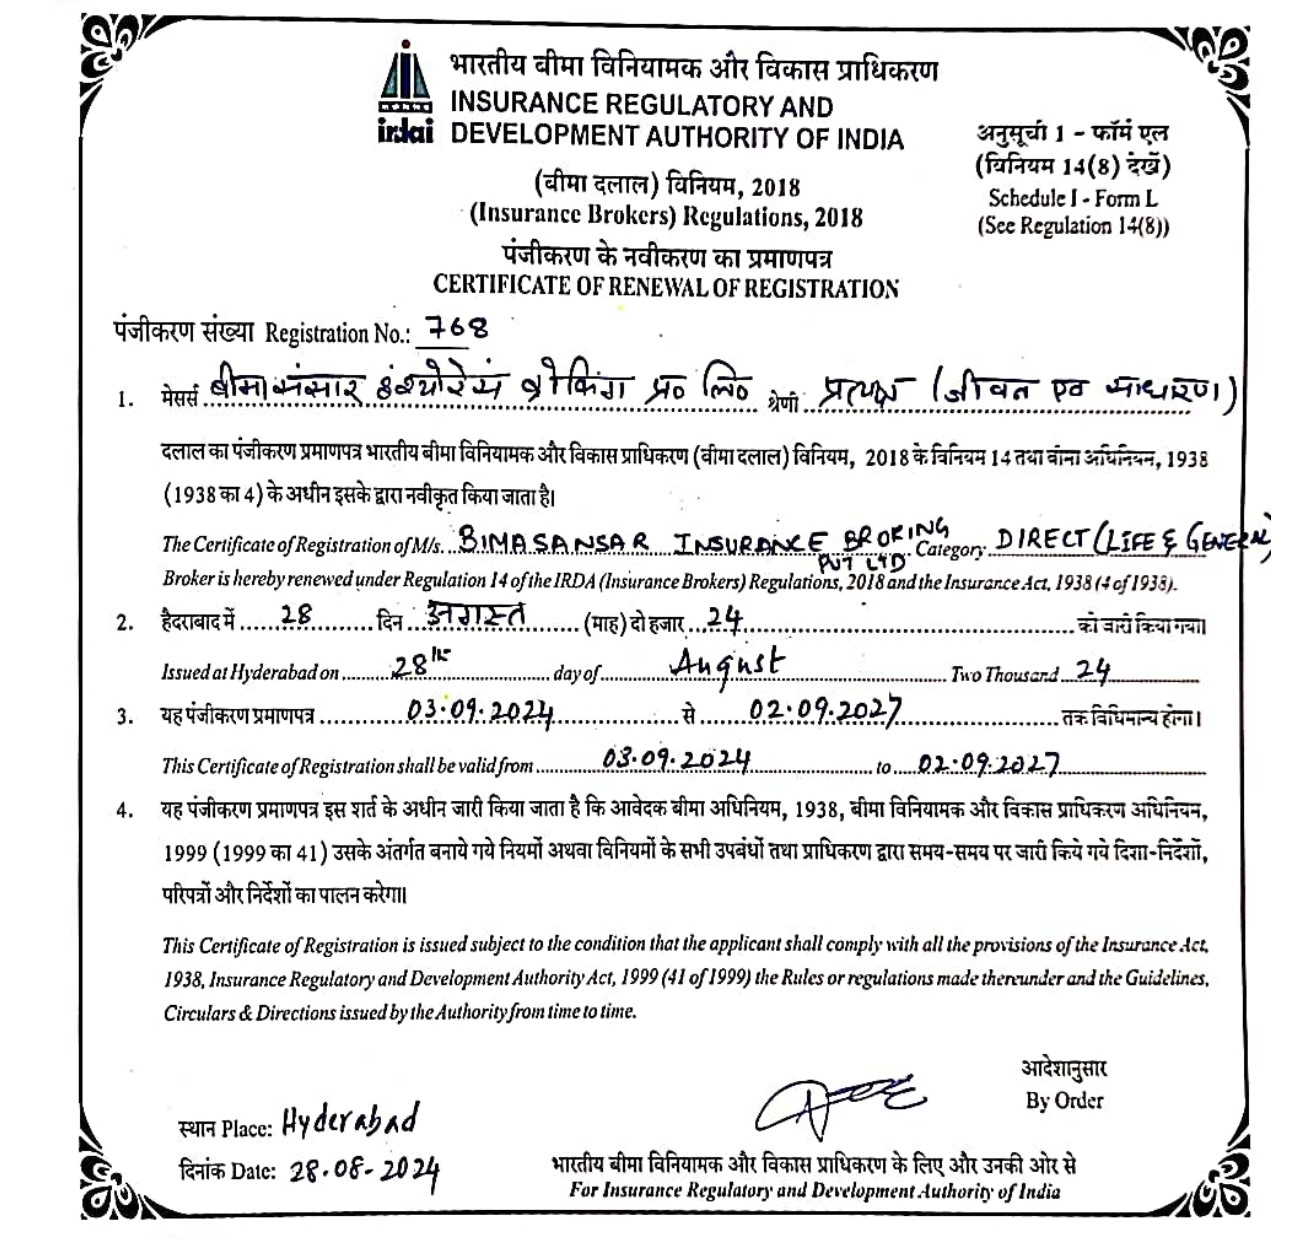 भारतीय बीमा विनियामक और विकास प्राधिकरण
INSURANCE REGULATORY AND
irdai DEVELOPMENT AUTHORITY OF INDIA
अनुसूची 1 - फॉर्म एल
(विनियम 14(8) देखें)
Schedule I - Form L
(See Regulation 14(8))
(बीमा दलाल) विनियम, 2018
(Insurance Brokers) Regulations, 2018
पंजीकरण के नवीकरण का प्रमाणपत्र
CERTIFICATE OF RENEWAL OF REGISTRATION
पंजीकरण संख्या Registration No.: 768
1. मेसर्स बीमासंसार इंश्योरेंस ब्रोकिंग प्रo लिo श्रेणी प्रत्यक्ष (जीवन एव साधारण)
दलाल का पंजीकरण प्रमाणपत्र भारतीय बीमा विनियामक और विकास प्राधिकरण (बीमा दलाल) विनियम, 2018 के विनियम 14 तथा बीमा अधिनियम, 1938
(1938 का 4) के अधीन इसके द्वारा नवीकृत किया जाता है।
The Certificate of Registration of M/s. BIMASANSAR INSURANCE BROKING PVT LTD Category DIRECT (LIFE & GENERAL)
Broker is hereby renewed under Regulation 14 of the IRDA (Insurance Brokers) Regulations, 2018 and the Insurance Act, 1938 (4 of 1938).
2. हैदराबाद में 28 दिन अगस्त (माह) दो हजार 24 को जारी किया गया।
Issued at Hyderabad on 28th day of August Two Thousand 24
3. यह पंजीकरण प्रमाणपत्र 03.09.2024 से 02.09.2027 तक विधिमान्य होगा।
This Certificate of Registration shall be valid from 03.09.2024 to 02.09.2027
4. यह पंजीकरण प्रमाणपत्र इस शर्त के अधीन जारी किया जाता है कि आवेदक बीमा अधिनियम, 1938, बीमा विनियामक और विकास प्राधिकरण अधिनियम,
1999 (1999 का 41) उसके अंतर्गत बनाये गये नियमों अथवा विनियमों के सभी उपबंधों तथा प्राधिकरण द्वारा समय-समय पर जारी किये गये दिशा-निर्देशों,
परिपत्रों और निर्देशों का पालन करेगा।
This Certificate of Registration is issued subject to the condition that the applicant shall comply with all the provisions of the Insurance Act,
1938, Insurance Regulatory and Development Authority Act, 1999 (41 of 1999) the Rules or regulations made thereunder and the Guidelines,
Circulars & Directions issued by the Authority from time to time.
आदेशानुसार
By Order
स्थान Place: Hyderabad
दिनांक Date: 28.08-2024
भारतीय बीमा विनियामक और विकास प्राधिकरण के लिए और उनकी ओर से
For Insurance Regulatory and Development Authority of India